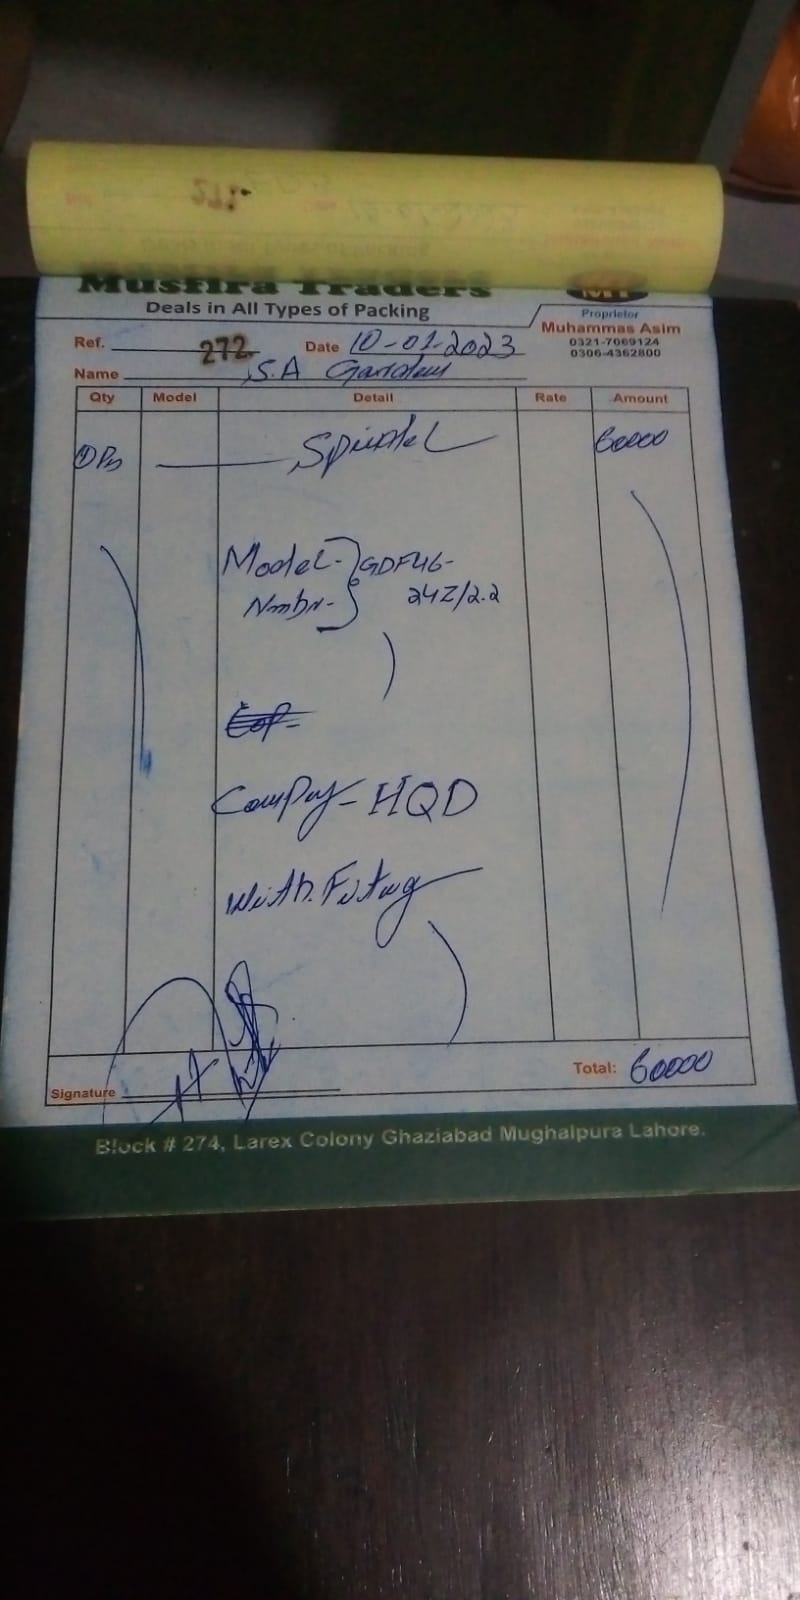 Mushra Traders
Deals in All Types of Packing
MT
Proprietor
Muhammas Asim
0321-7669124
0306-4362800
Ref. 272 Date 10-01-2023
Name S.A
Qty Model Detail Rate Amount
Spindel 60000
Model- GDF46-
24Z/2.2
HQD
With.
Total: 60000
Signature
Block # 274, Larex Colony Ghaziabad Mughalpura Lahore.